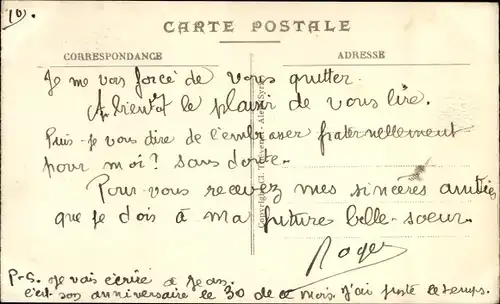 10).
CARTE POSTALE
CORRESPONDANCE
ADRESSE
Je me vois forcé de vous quitter.
A bientôt le plaisir de vous lire.
Puis-je vous dire de l'embrasser fraternellement
pour moi? Sans doute.
Pour vous recevez mes sincères amitiés
que je dois à ma future belle-soeur.
Roger
P-S. Je vais écrire à Jean
c'est son anniversaire le 30 de ce mois. J'ai juste le temps.
Copyright Cl.